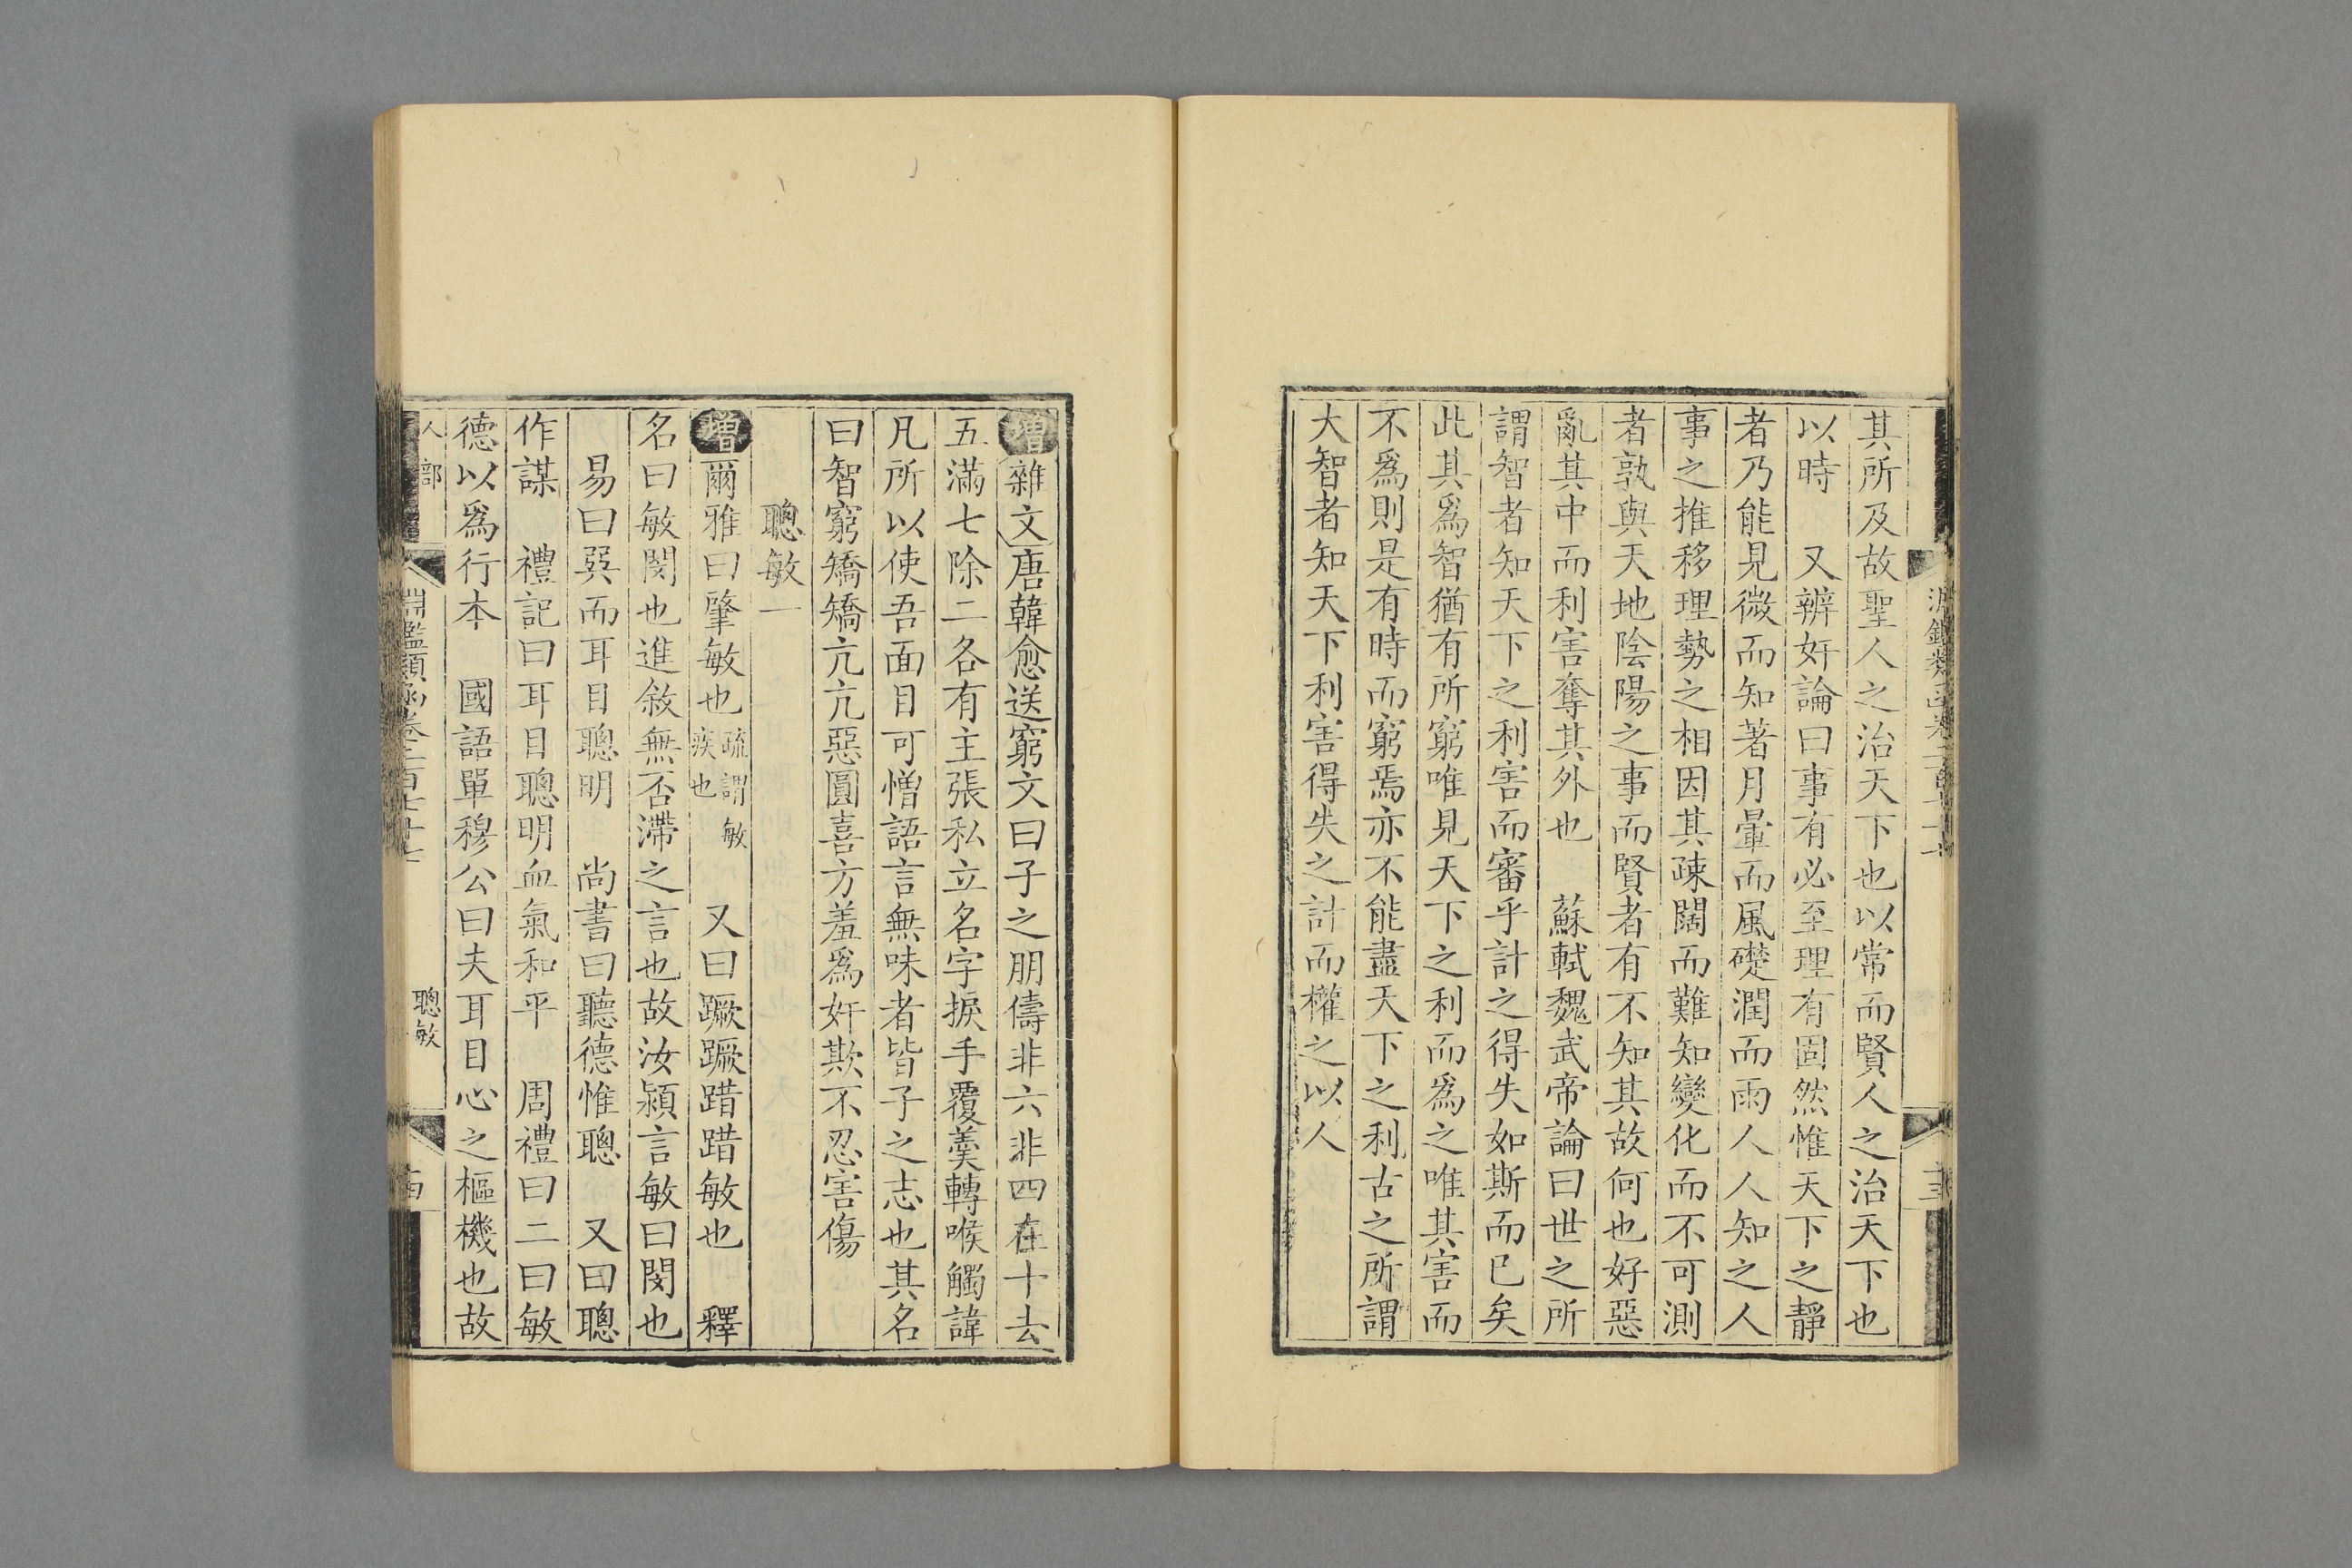 其所及故聖人之治天下也以常而賢人之治天下也
以時　又辨奸論曰事有必至理有固然惟天下之靜
者乃能見微而知著月暈而風礎潤而雨人人知之人
事之推移理勢之相因其疎闊而難知變化而不可測
者孰與天地陰陽之事而賢者有不知其故何也好惡
亂其中而利害奪其外也　蘇軾魏武帝論曰世之所
謂智者知天下之利害而審乎計之得失如斯而已矣
此其爲智猶有所窮唯見天下之利而爲之唯其害而
不爲則是有時而窮焉亦不能盡天下之利古之所謂
大智者知天下利害得失之計而權之以人
增雜文唐韓愈送窮文曰子之朋儔非六非四在十去
五滿七除二各有主張私立名字捩手覆羹轉喉觸諱
凡所以使吾面目可憎語言無味者皆子之志也其名
曰智窮矯矯亢亢惡圓喜方羞爲奸欺不忍害傷
聰敏一
增爾雅曰肇敏也疏謂敏疾也　又曰蹶蹶踖踖敏也　釋
名曰敏閔也進敘無否滯之言也故汝潁言敏曰閔也
易曰巽而耳目聰明　尚書曰聽德惟聰　又曰聰
作謀　禮記曰耳目聰明血氣和平　周禮曰二曰敏
德以爲行本　國語單穆公曰夫耳目心之樞機也故
人部
淵鑑類函卷二百七十七
聰敏